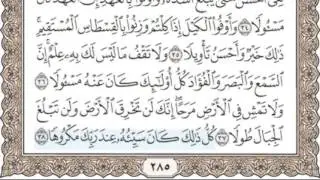 مَسْـُٔولًا ٣٤ وَأَوْفُوا۟ ٱلْكَيْلَ إِذَا كِلْتُمْ وَزِنُوا۟ بِٱلْقِسْطَاسِ ٱلْمُسْتَقِيمِ
ذَٰلِكَ خَيْرٌ وَأَحْسَنُ تَأْوِيلًا ٣٥ وَلَا تَقْفُ مَا لَيْسَ لَكَ بِهِۦ عِلْمٌ إِنَّ
ٱلسَّمْعَ وَٱلْبَصَرَ وَٱلْفُؤَادَ كُلُّ أُو۟لَٰٓئِكَ كَانَ عَنْهُ مَسْـُٔولًا ٣٦
وَلَا تَمْشِ فِى ٱلْأَرْضِ مَرَحًا إِنَّكَ لَن تَخْرِقَ ٱلْأَرْضَ وَلَن تَبْلُغَ
ٱلْجِبَالَ طُولًا ٣٧ كُلُّ ذَٰلِكَ كَانَ سَيِّئُهُۥ عِندَ رَبِّكَ مَكْرُوهًا ٣٨
٢٨٥